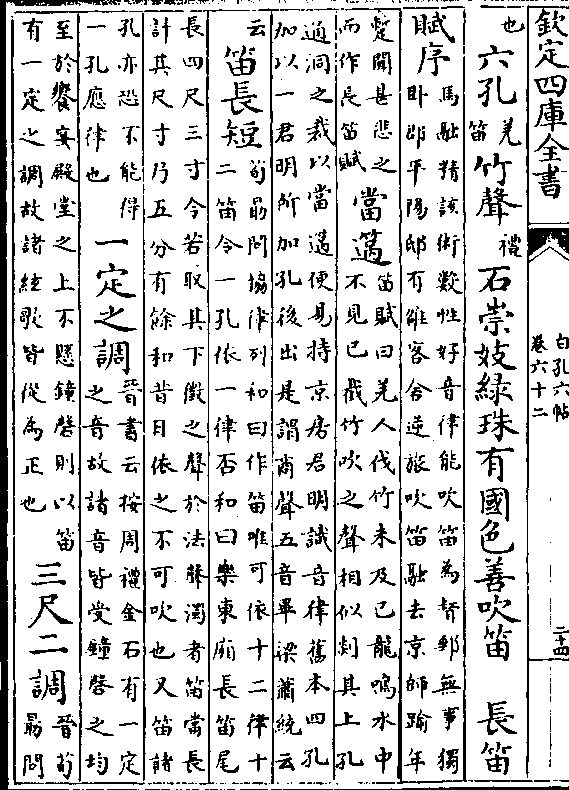 欽定四庫全書
白孔六帖
卷六十二
二十四
也 六孔 羌笛 竹聲 禮 石崇妓緑珠有國色善吹笛 長笛
賦序 馬融精該術數性好音律能吹笛為督郵無事獨
卧郿平陽邸有雒客舍逆旅吹笛融去京師踰年
蹔聞甚悲之
而作長笛賦 當薖 笛賦曰羌人伐竹未及已龍鳴水中
不見已截竹吹之聲相似剡其上孔
通洞之裁以當薖便易持京房君明識音律舊本四孔
加以一君明所加孔後出是謂商聲五音畢梁蕭統云
云 笛長短 荀勗問協律列和曰作笛唯可依十二律十
二笛令一孔依一律否和曰樂東廂長笛尾
長四尺三寸今若取其下徵之聲於法聲濁者笛當長
計其尺寸乃五分有餘和昔日依之不可吹也又笛諸
孔亦恐不能得
一孔應律也 一定之調 晉書云按周禮金石有一定
之音故諸音皆受鐘磬之均
至於饗宴殿堂之上不懸鐘磬則以笛
有一定之調故諸絃歌皆從為正也 三尺二調 晉荀
勗問